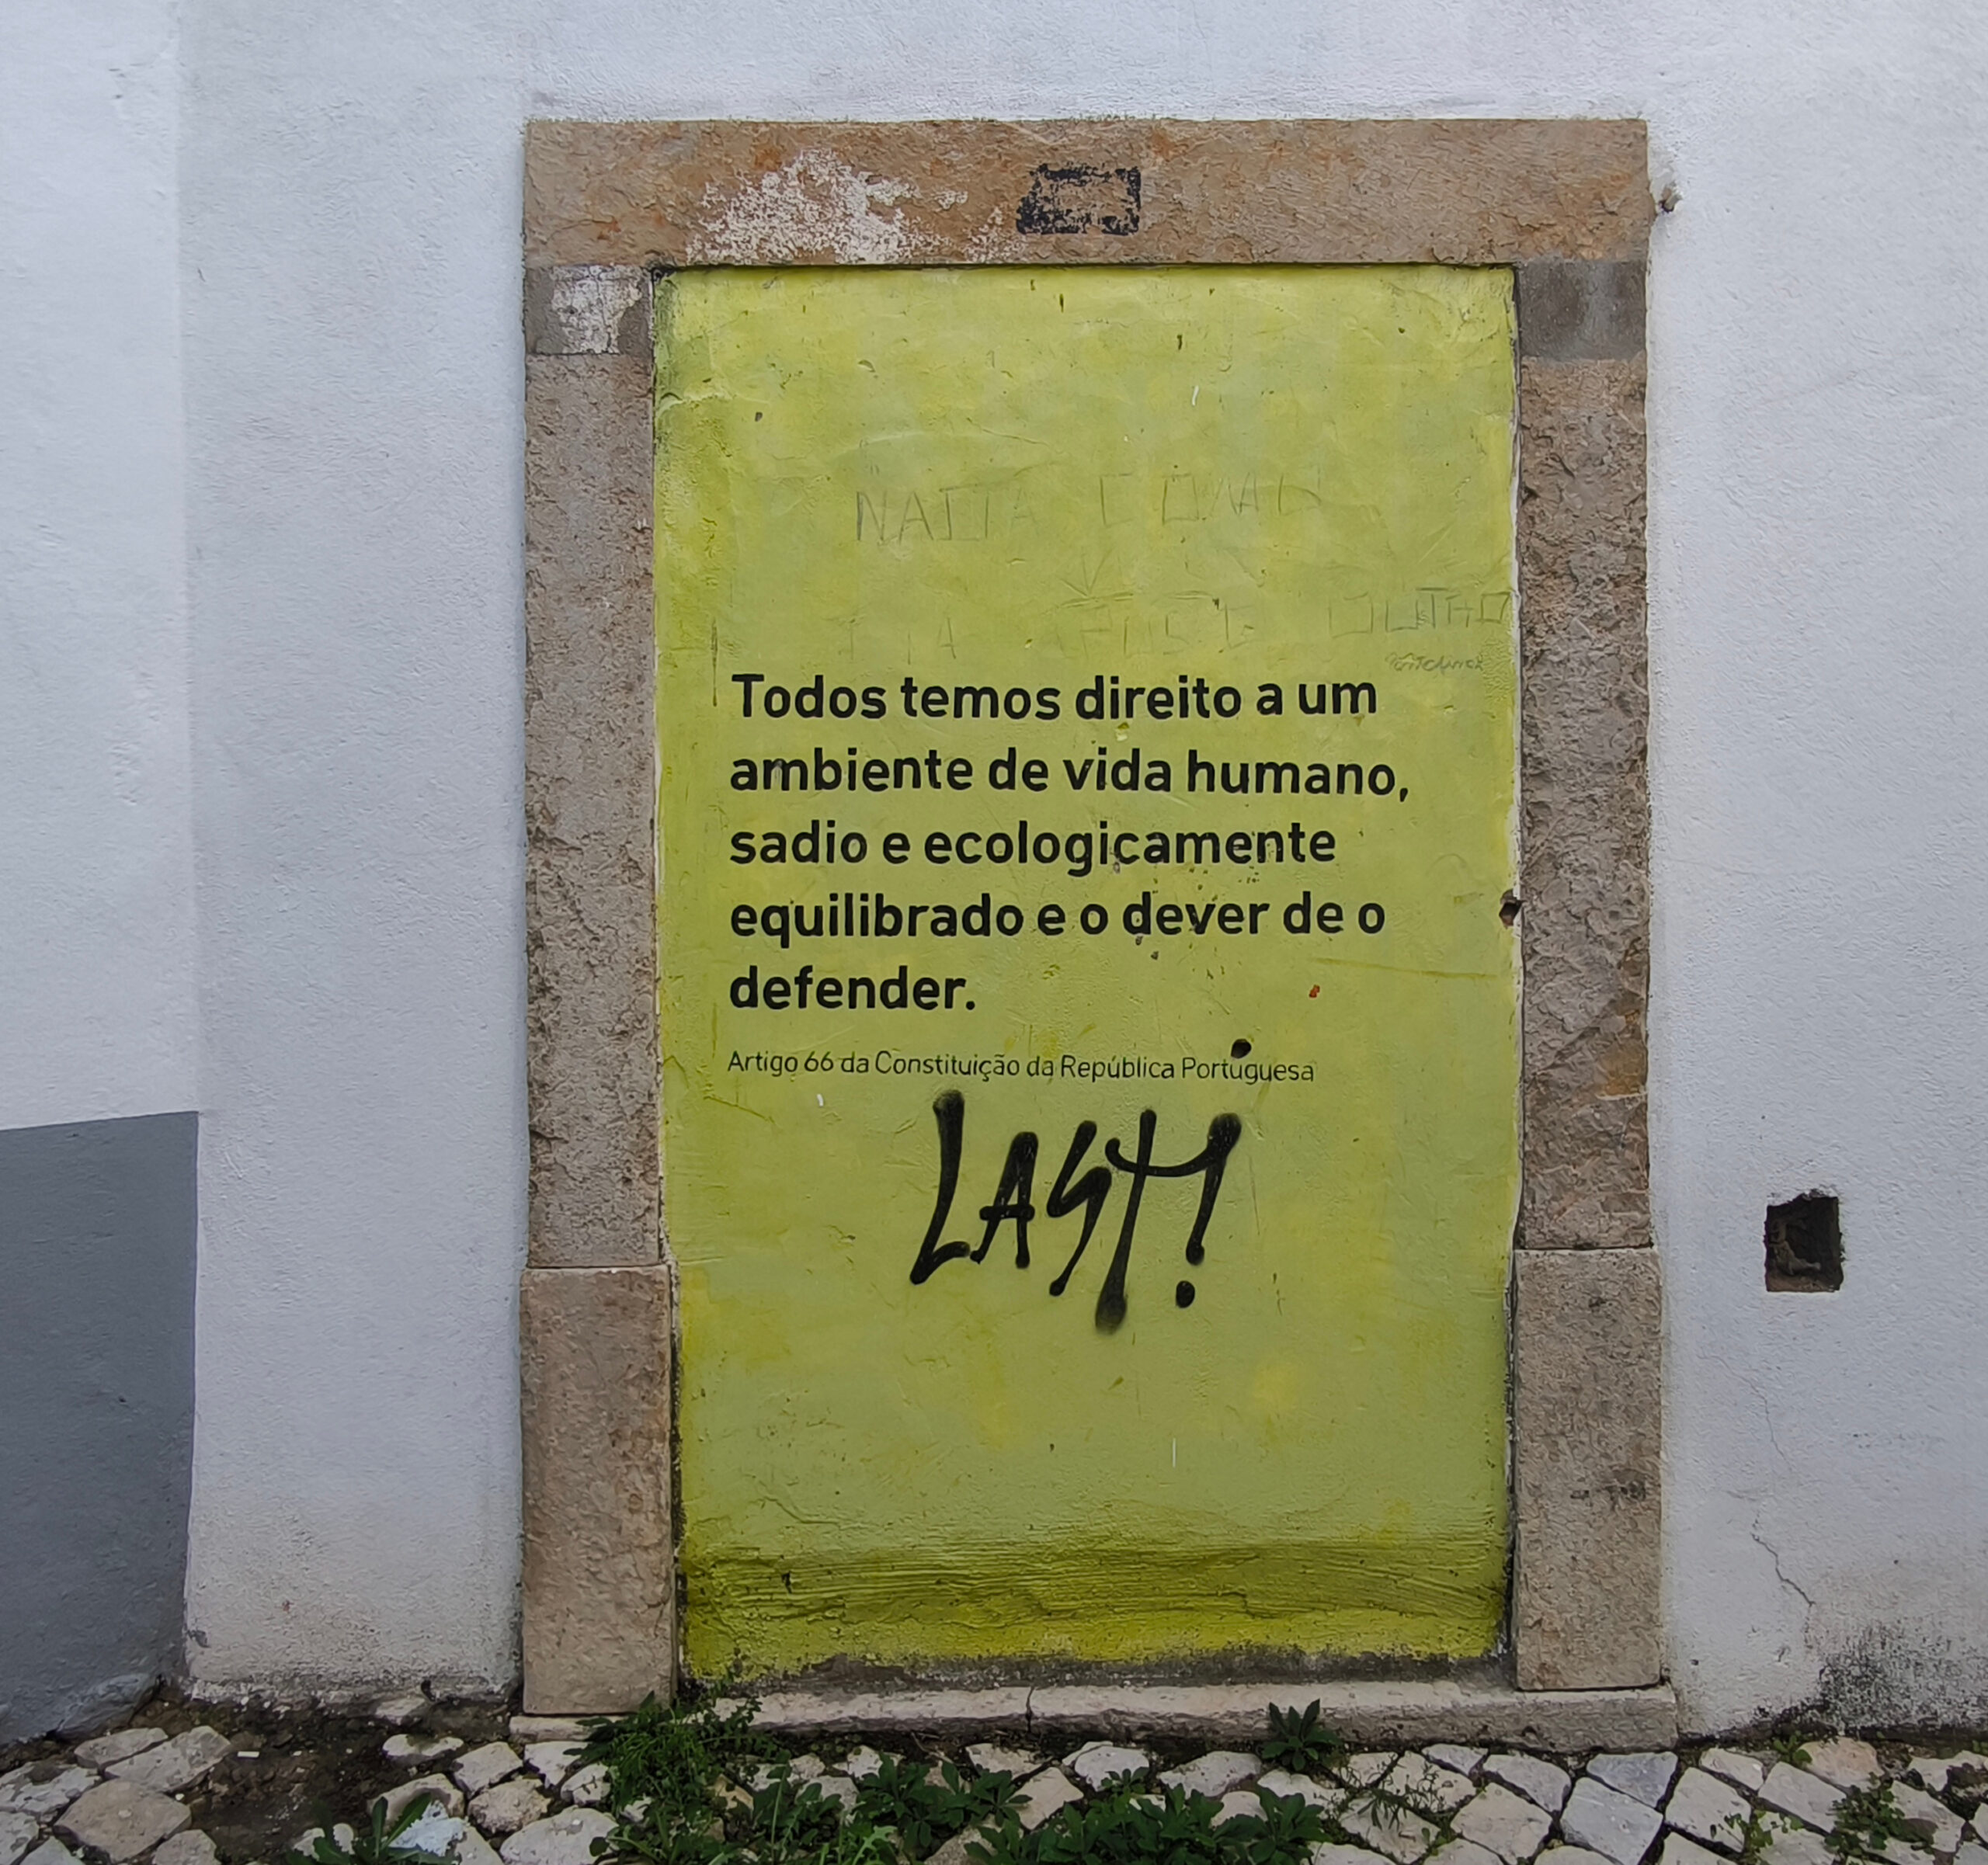 Todos temos direito a um
ambiente de vida humano,
sadio e ecologicamente
equilibrado e o dever de o
defender.
Artigo 66 da Constituição da República Portuguesa
LAST!